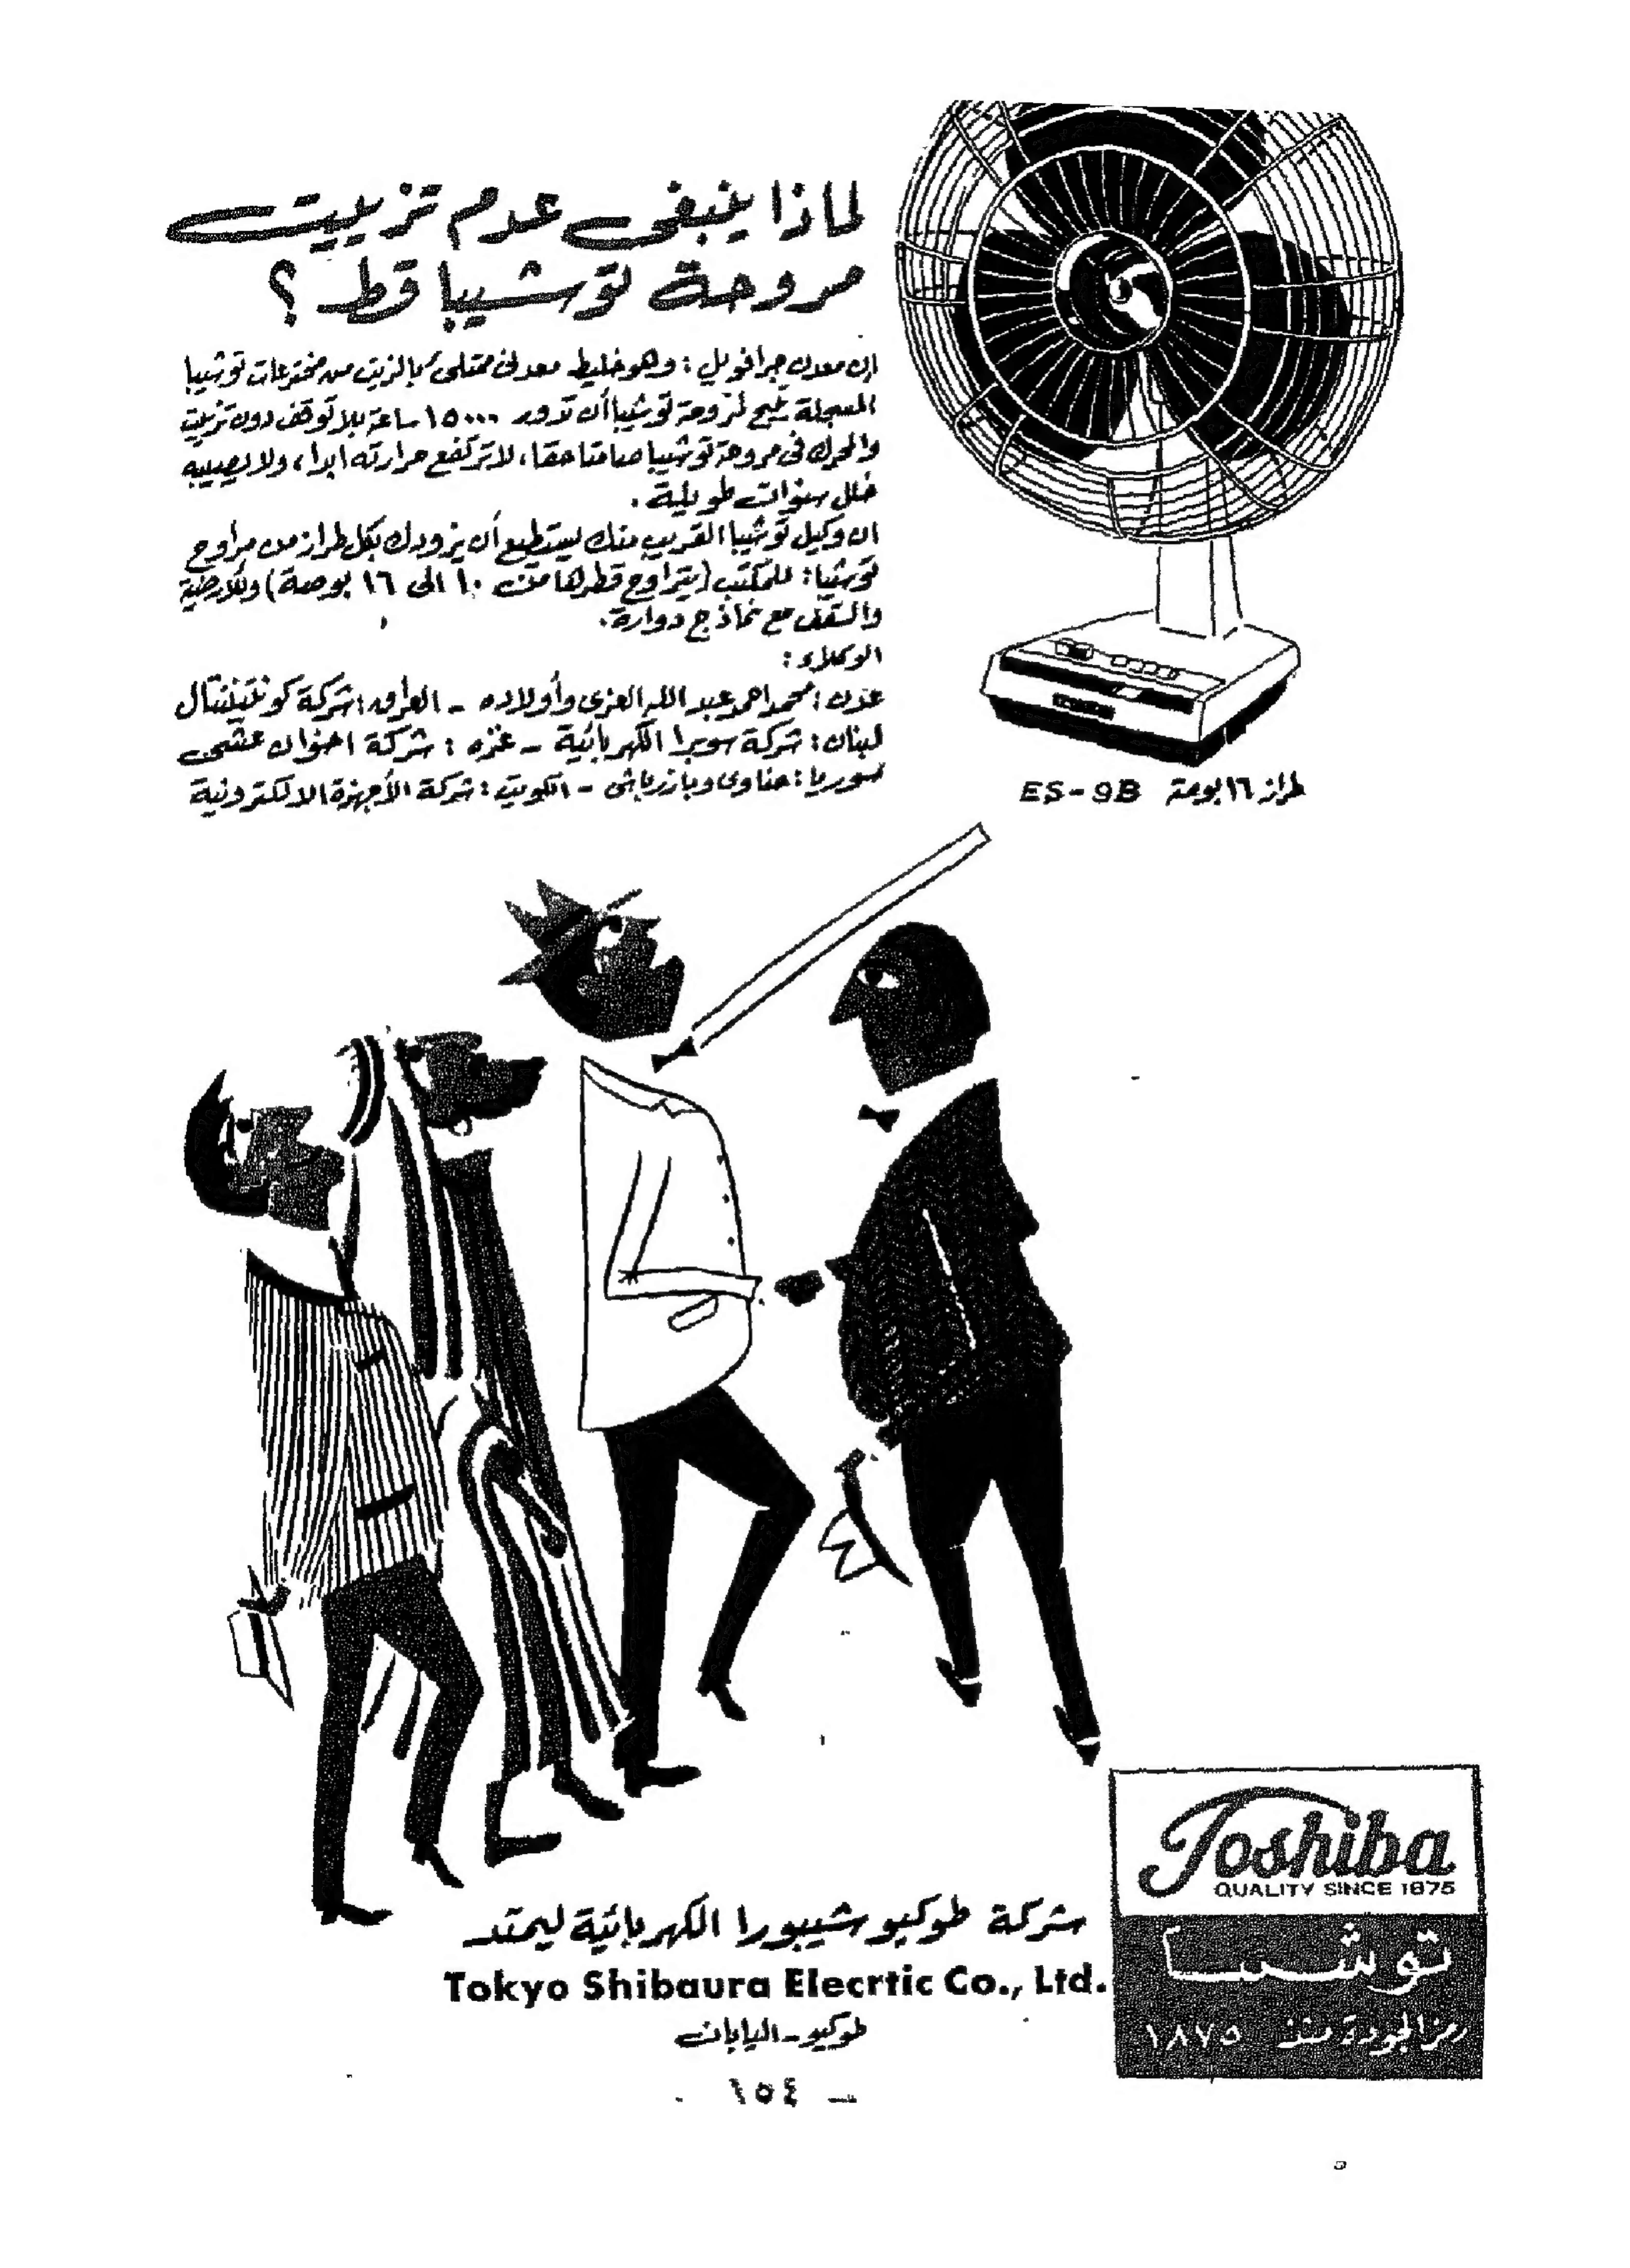 لماذا ينبغى عدم تزييت
مروحة توشيبا قط ؟
إن معدن جرافويل : وهو خليط معدنى ممتلئ بالزيت من مخترعات توشيبا
المسجلة يتيح لمروحة توشيبا أن تدور ١٥٠٠٠ ساعة بلا توقف دون تزييت
والمحرك فى مروحة توشيبا صامتا حقا، لا ترتفع حرارته ابدا، ولا يصيبه
خلل سنوات طويلة .
ان وكيل توشيبا القريب منك يستطيع أن يزودك بكل طراز من مراوح
توشيبا : للمكتب (يتراوح قطرها من ١٠ الى ١٦ بوصة) وللأرضية
والسقف مع نماذج دوارة .
الوكلاء :
عدن : محمد احمد عبد الله العزى وأولاده - العراق : شركة كونتيننتال
لبنان : شركة سوبرا الكهربائية - غزه : شركة اخوان عشى
سوريا : حناوى وبازرباشى - الكويت : شركة الأجهزة الالكترونية
طراز ١٦ بوصة ES-9B
Toshiba
QUALITY SINCE 1875
توشيبا
رمز الجودة منذ ١٨٧٥
شركة طوكيو شيبورا الكهربائية ليمتد
Tokyo Shibaura Elecrtic Co., Ltd.
طوكيو - اليابان
- ١٥٤